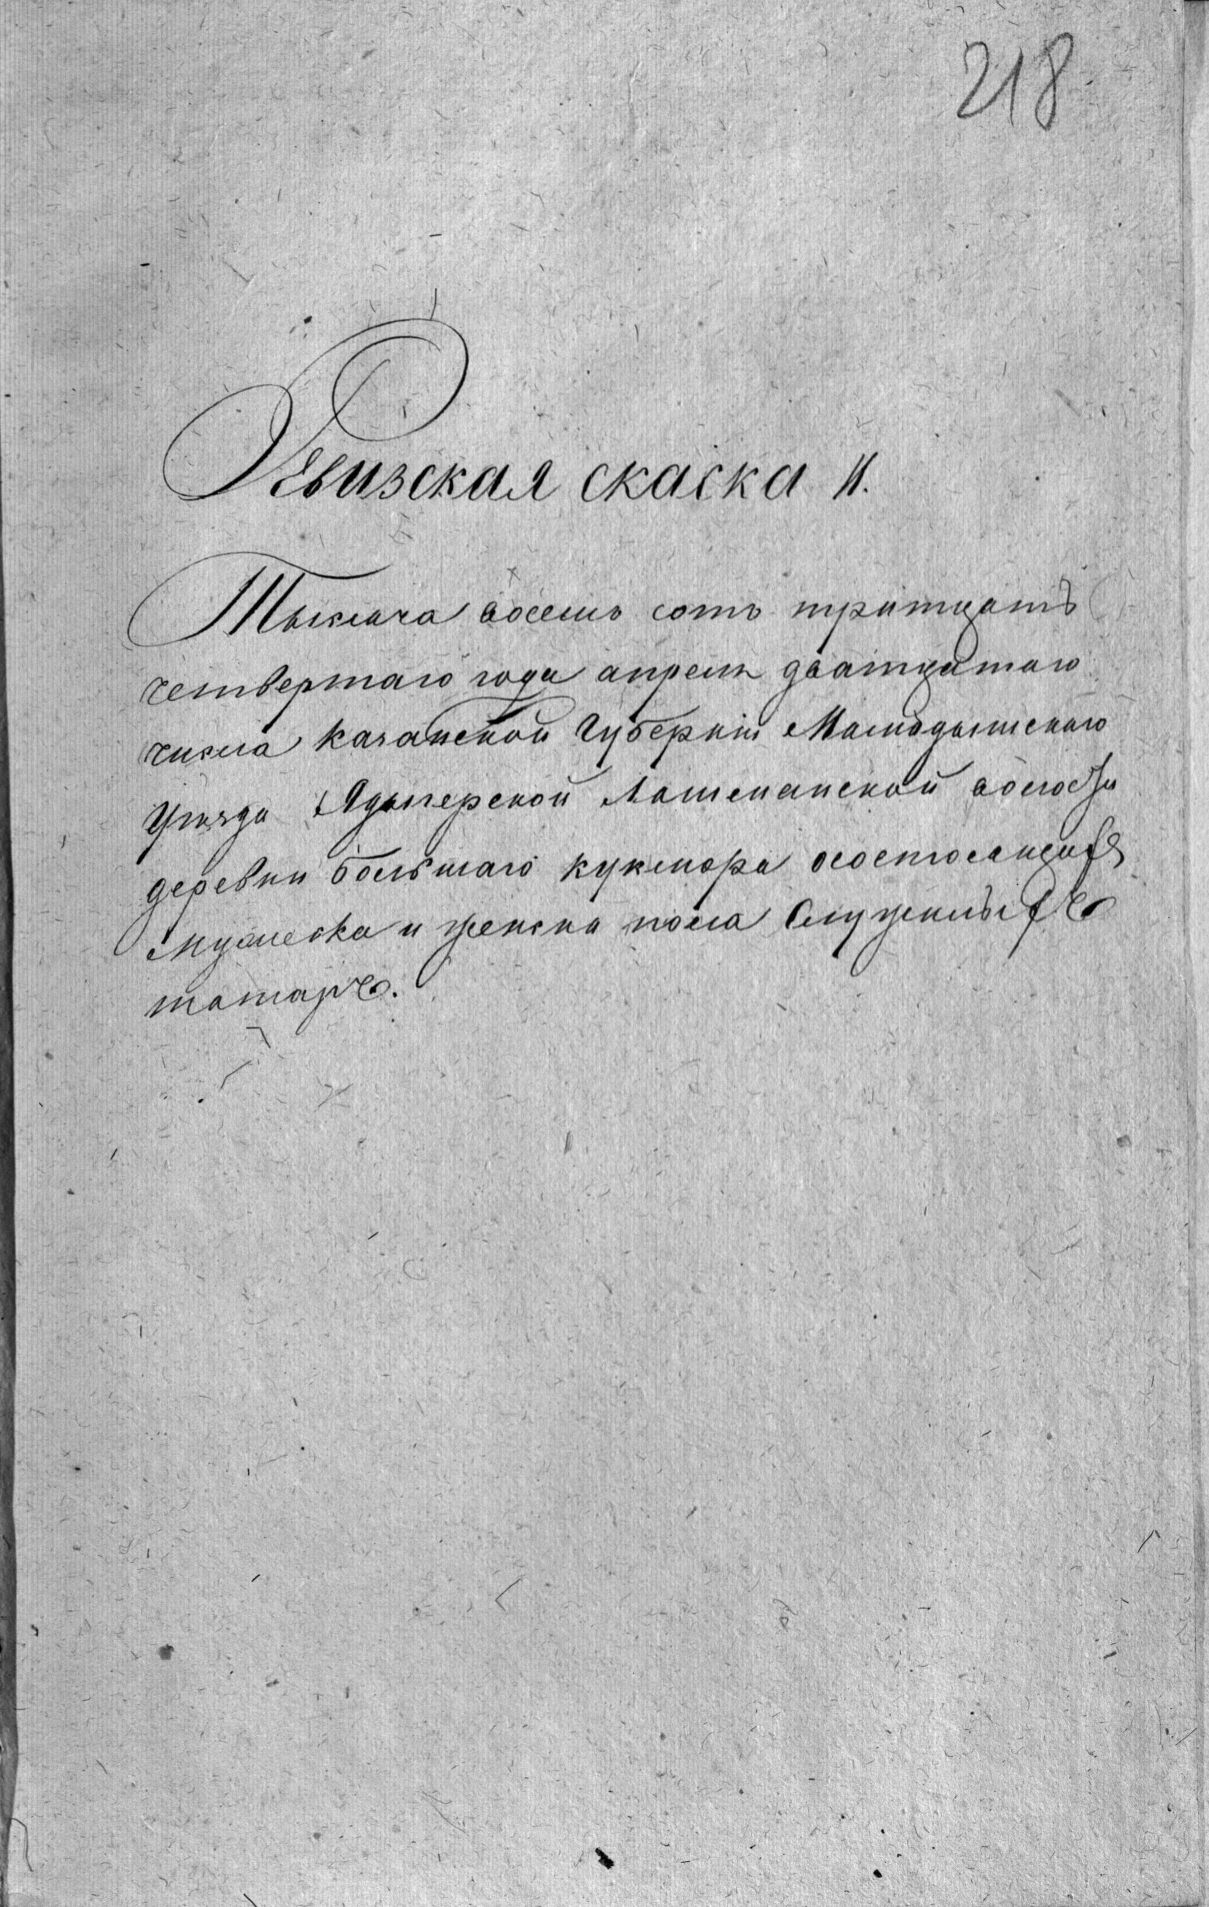 218
Ревизская скаска №.
Тысяча восемь сотъ тритцать
четвертаго года апреля дватцатаго
числа казанской Губерніи Мамадышскаго
Уѣзда Лашманской волости
деревни большаго кукмора о состоящихъ
мужеска и женска пола Служилыхъ
татаръ.